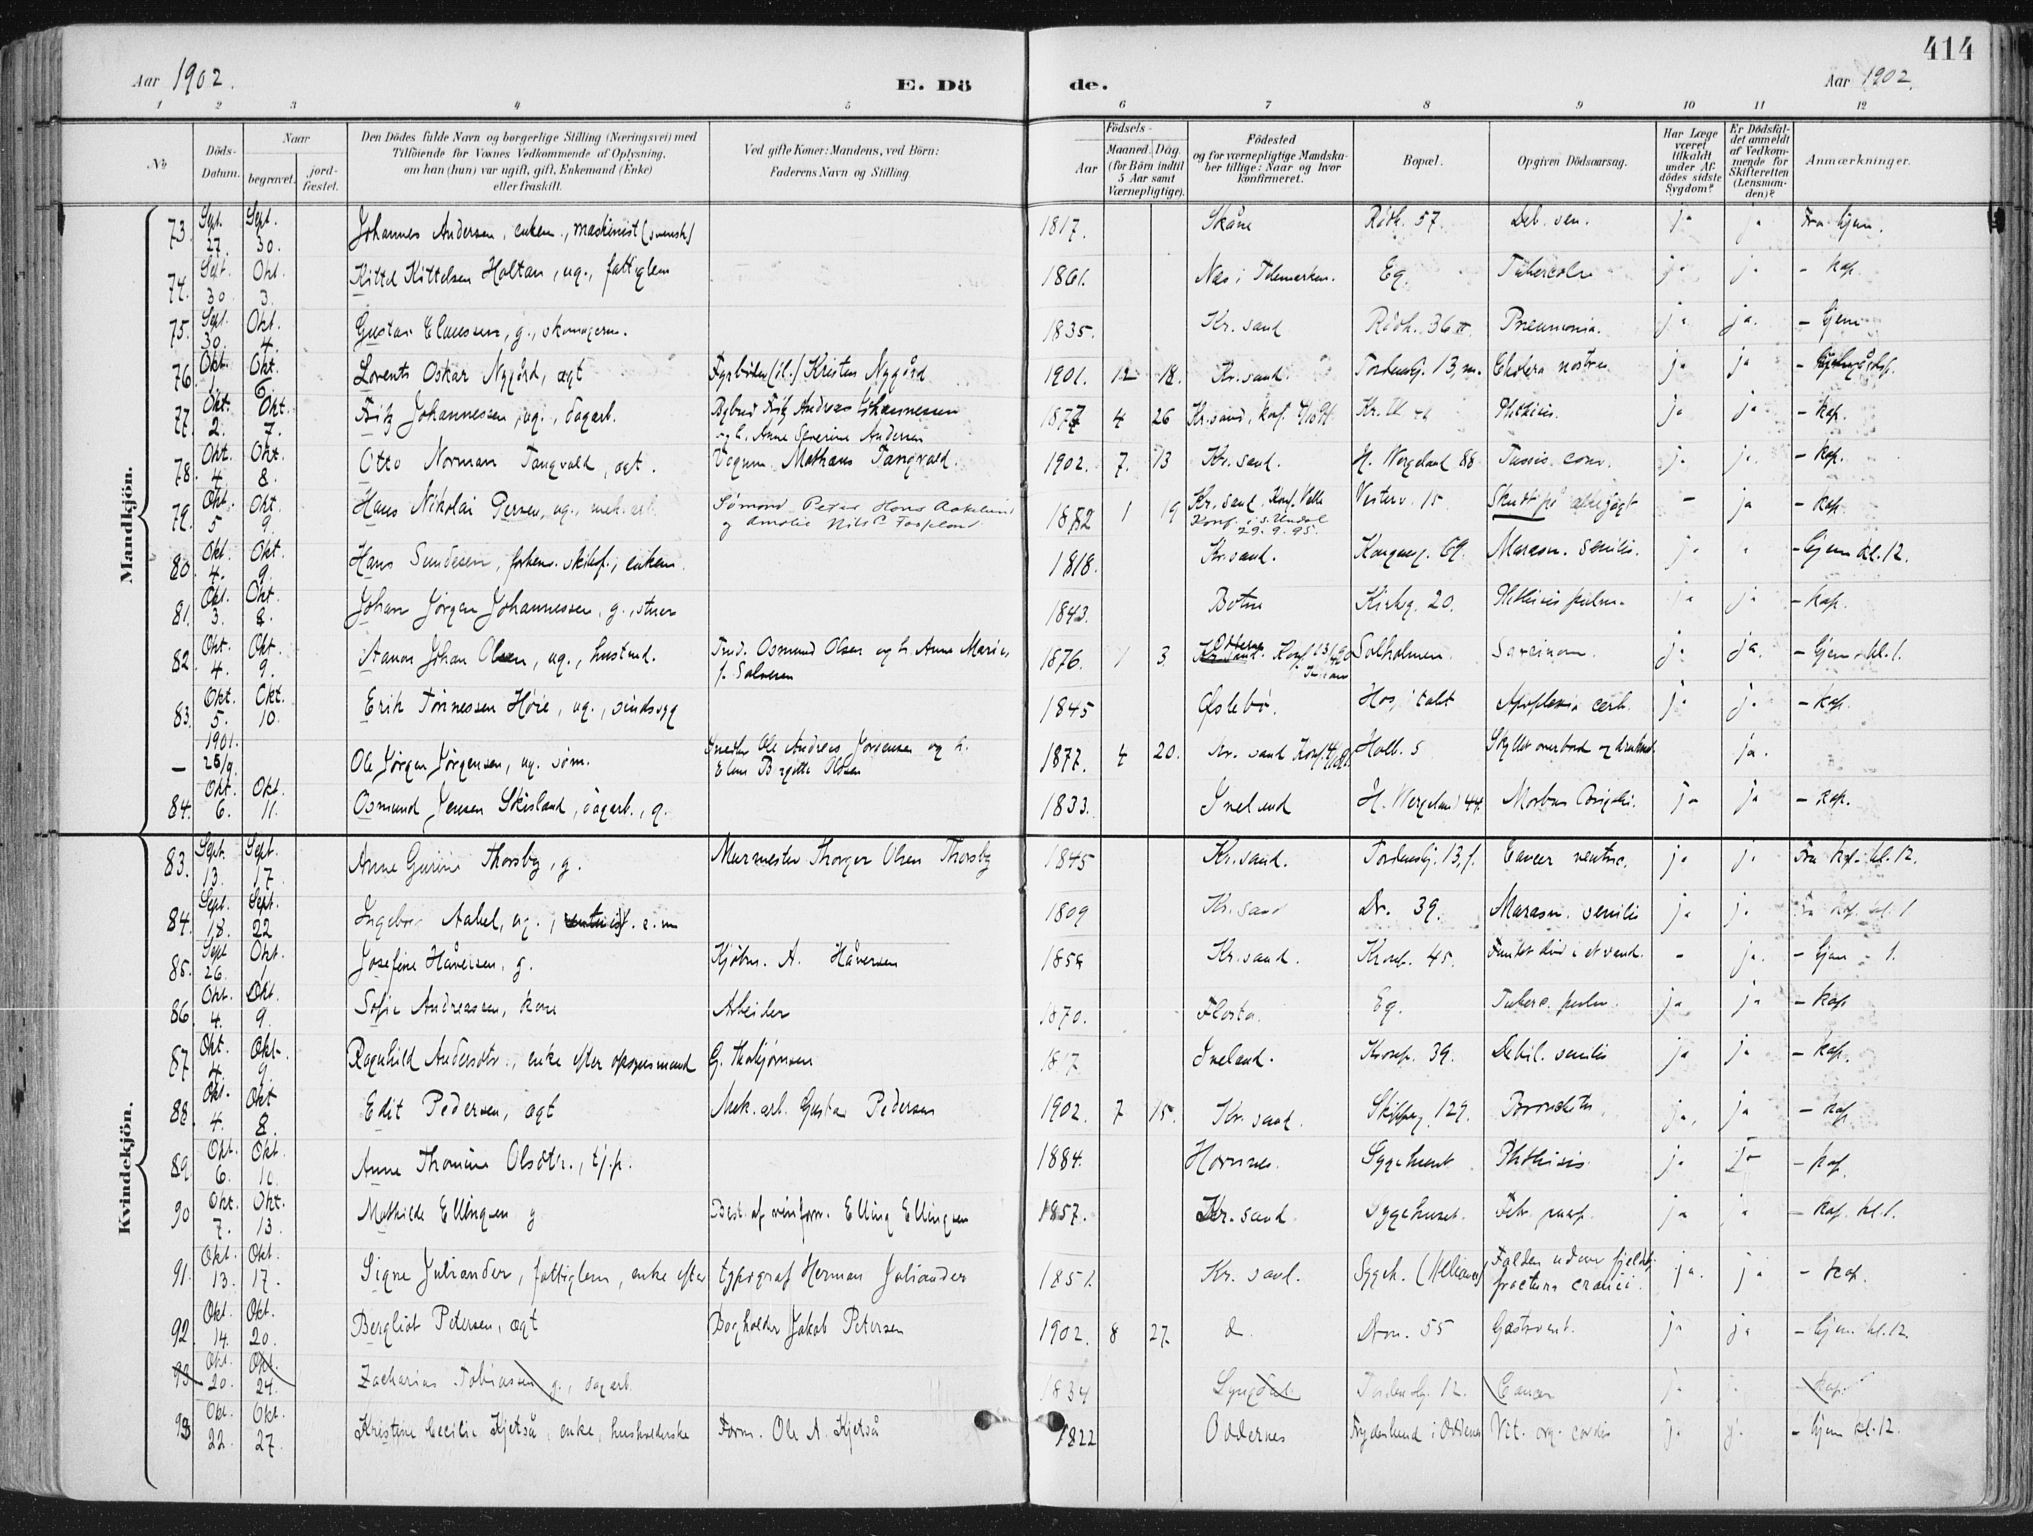 414
Aar 1902.
E. Dö
de.
Aar 1902.
1 2 3 4 5 6 7 8 9 10 11 12
No
Döds-
Datum.
Naar
begravet.
jord-
fæstet.
Den Dödes fulde Navn og borgerlige Stilling (Næringsvei) med
Tilföiende for Voxnes Vedkommende af Oplysning,
om han (hun) var ugift, gift, Enkemand (Enke)
eller fraskilt.
Ved gifte Koner: Mandens, ved Börn:
Faderens Navn og Stilling
Födsels-
Aar
Maaned. Dag.
(for Börn indtil
5 Aar samt
Værnepligtige).
Födested
og for værnepligtige Mandska-
ber tillige: Naar og hvor
konfirmeret.
Bopæl.
Opgiven Dödsaarsag.
Har Læge
været
tilkaldt
under Af-
dödes sidste
Sygdom?
Er Dödsfal-
det anmeldt
af Vedkom-
mende for
Skifteretten
(Lensman-
den)?
Anmærkninger.
Mandkjön.
73. Sept. 27. Sept. 30. Johannes Andersen, enkem., maskinist (svensk) 1817. Skåne Rådh. 57. Deb. sen. ja ja Fra hjem.
74. Sept. 30. Okt. 3. Kittel Kittelsen Holtan, ug., fattiglem 1861. Næs i Telemarken. Eg. ja ja - kap.
75. Sept. 30. Okt. 4. Gustav Claussen, g., skomagerm. 1835. Kr.sand Rådh. 36 Pneumonia. ja ja. - hjem
76. Okt. 1. Okt. 6. Lorents Oskar Nygård, ægt Fyrbøder Kristen Nygård 1901. 12 18. Kr.sand. Tordensg. 13, Cholera nostras ja ja
77. Okt. 2. Okt. 7. Fritz Johannessen, ug., dagarb. Bybud Fritz Andreas Johannessen
og h. Anne Severine Andersen 1877 4 26 Kr.sand, konf. Phthisis. ja ja - kap.
78. Okt. 4. Okt. 8. Otto Norman Tangvald, ægt. Vognm. Mathæus Tangvald. 1902. 7. 13 Kr.sand. H. Wergeland 88 Tussis conv. ja ja - kap.
79. Okt. 5 Okt. 9. Hans Nikolai ug., mek. arb. Sømand Peter Hans
og Amalie 1882 1 19 Kr.sand, Konf.
Konf. i s. Undal
29.9.95. Vesterv. 15 Skudt på - ja - kap
80. Okt. 4. Okt. 9. Hans enkem. 1818. Kr.sand. Kongensg. 69. Marasm. senilis. ja - hjem kl. 12.
81. Okt. 3. Okt. 8. Johan Jørgen Johannessen, g., stuer 1843. Botne Kirkeg. 20. Phthisis pulm. ja ja - kap.
82. Okt. 4. Okt. 9. Johan Olsen, ug., Osmund Olsen og h. Anne Marie
f. Salvesen 1876. 1 3 Konf. Solholmen. Sarcinom. ja ja. - hjem kl. 1.
83. Okt. 5. Okt. 10. Erik Tønnessen Høie, ug., sindssyg 1845 Øslebø. Hospitalt Apoplexia cerb. ja ja. - kap.
- 1901. 25/9. Ole Jørgen Jørgensen, ug. søm. Snedker Ole Andreas Jørgensen og h.
Elen Birgitte Olsen 1877. 4 20. Kr. sand Konf. Holb. 5 Skyllet overbord og druknet ja.
84. Okt. 6. Okt. 11. Osmund Jensen Skisland, dagarb., g. 1833. Iveland H. Wergeland 44. Morbus Brigthi. ja ja - kap.
Kvindekjön.
83. Sept. 13. Sept. 17. Anne Gurine Thorsby, g. Murmester Thorger Olsen Thorsby 1845 Kr.sand. Tordenskj. 13, Cancer ventric. ja ja. Fra kap. kl. 12.
84. Sept. 18. Sept. 22 Ingebor Aabel, ug., 1809 Kr.sand Dr. 39. Marasm. senilis ja ja. Fra kap. kl. 1
85. Sept 26. Okt. 1. Josefine Håversen, g. Kjøbm. A. Håversen Kr.sand. Kronp. 45. Fundet død i et vand. - ja. - hjem - 1.
86 Okt. 4. Okt. 9. Sofie Andreassen, kone Arbeider 1870. Flosta. Eg. Tuberc. pulm. ja ja - kap
87 Okt. 4. Okt. 9. Ragnhild Andersdtr., enke efter opsynsmand G. Thobjørnsen 1817 Iveland. Kronp. 39. Debil. senilis ja ja - kap.
88. Okt. 4. Okt 8. Edit Pedersen, ægt Mek. arb. Gustav Pedersen 1902. 7 15. Kr. sand. Skipperg. 129. Bronchitis. ja. ja - kap
89. Okt. 6. Okt. 10. Anne Thomine Olsdtr., tj.p. 1884. Hornnes. Sygehuset Phthisis ja Ja - kap.
90 Okt. 7. Okt. 13. Mathilde Ellingsen g. Best. af Elling Ellingsen 1857. Kr. sand. Sygehuset. Febr. puerp. ja ja - kap. kl. 1.
91. Okt. 13. Okt. 17. Signe Juliander, fattiglem, enke efter typograf Herman Juliander 1851. Kr. sand. Sygeh. Falden udover fjeld,
fractura cranii. ja. ja - kap.
92. Okt. 14. Okt. 20. Bergliot Petersen, ægt Bogholder Jakob Petersen 1902. 8 27. d. Dron. 55 Gastroent. ja ja - hjem kl. 12.
93 Okt. 20. Okt. 24. Zacharias Tobiassen g., dagarb. 1834 Lyngdal Tordenskj. 12. Cancer ja - kap.
93 Okt. 22. Okt. 27. Kristine Cecilie Kjetså, enke, husholderske Form. Ole A. Kjetså 1822 Oddernes Frydenlund i Oddernes Vit. org. cordis ja. ja. - hjem kl. 12.